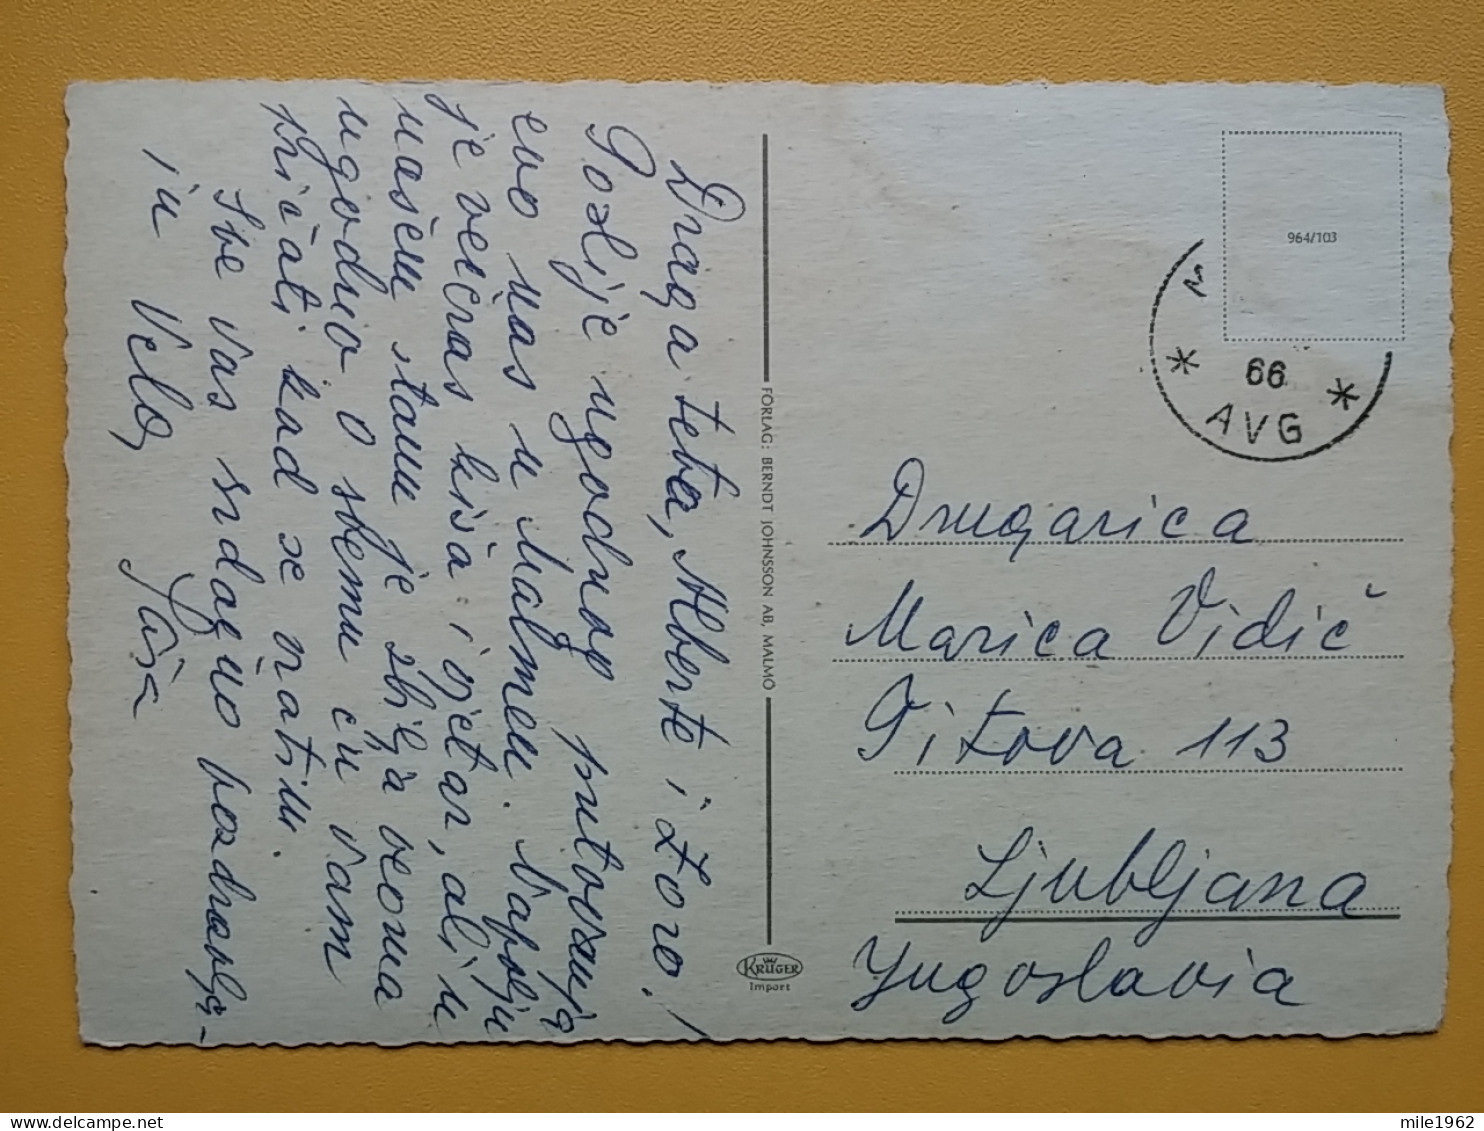 Draga teta, Alberte i Zoro!
Poslije ugodnog putovanja
evo nas u Malmeu. Vapolju
je večras kiša i vjetar, ali u
našem stanu je zbilja veoma
ugodno o svemu ću vam
pričati kad se vratim.
Sve vas srdačno pozdravlja-
ju Vela Saša
FÖRLAG: BERNDT JOHNSSON AB, MALMÖ
KRÜGER
Import
964/103
66
AVG
Drugarica
Marica Vidič
Titova 113
Ljubljana
Yugoslavia
mile1962